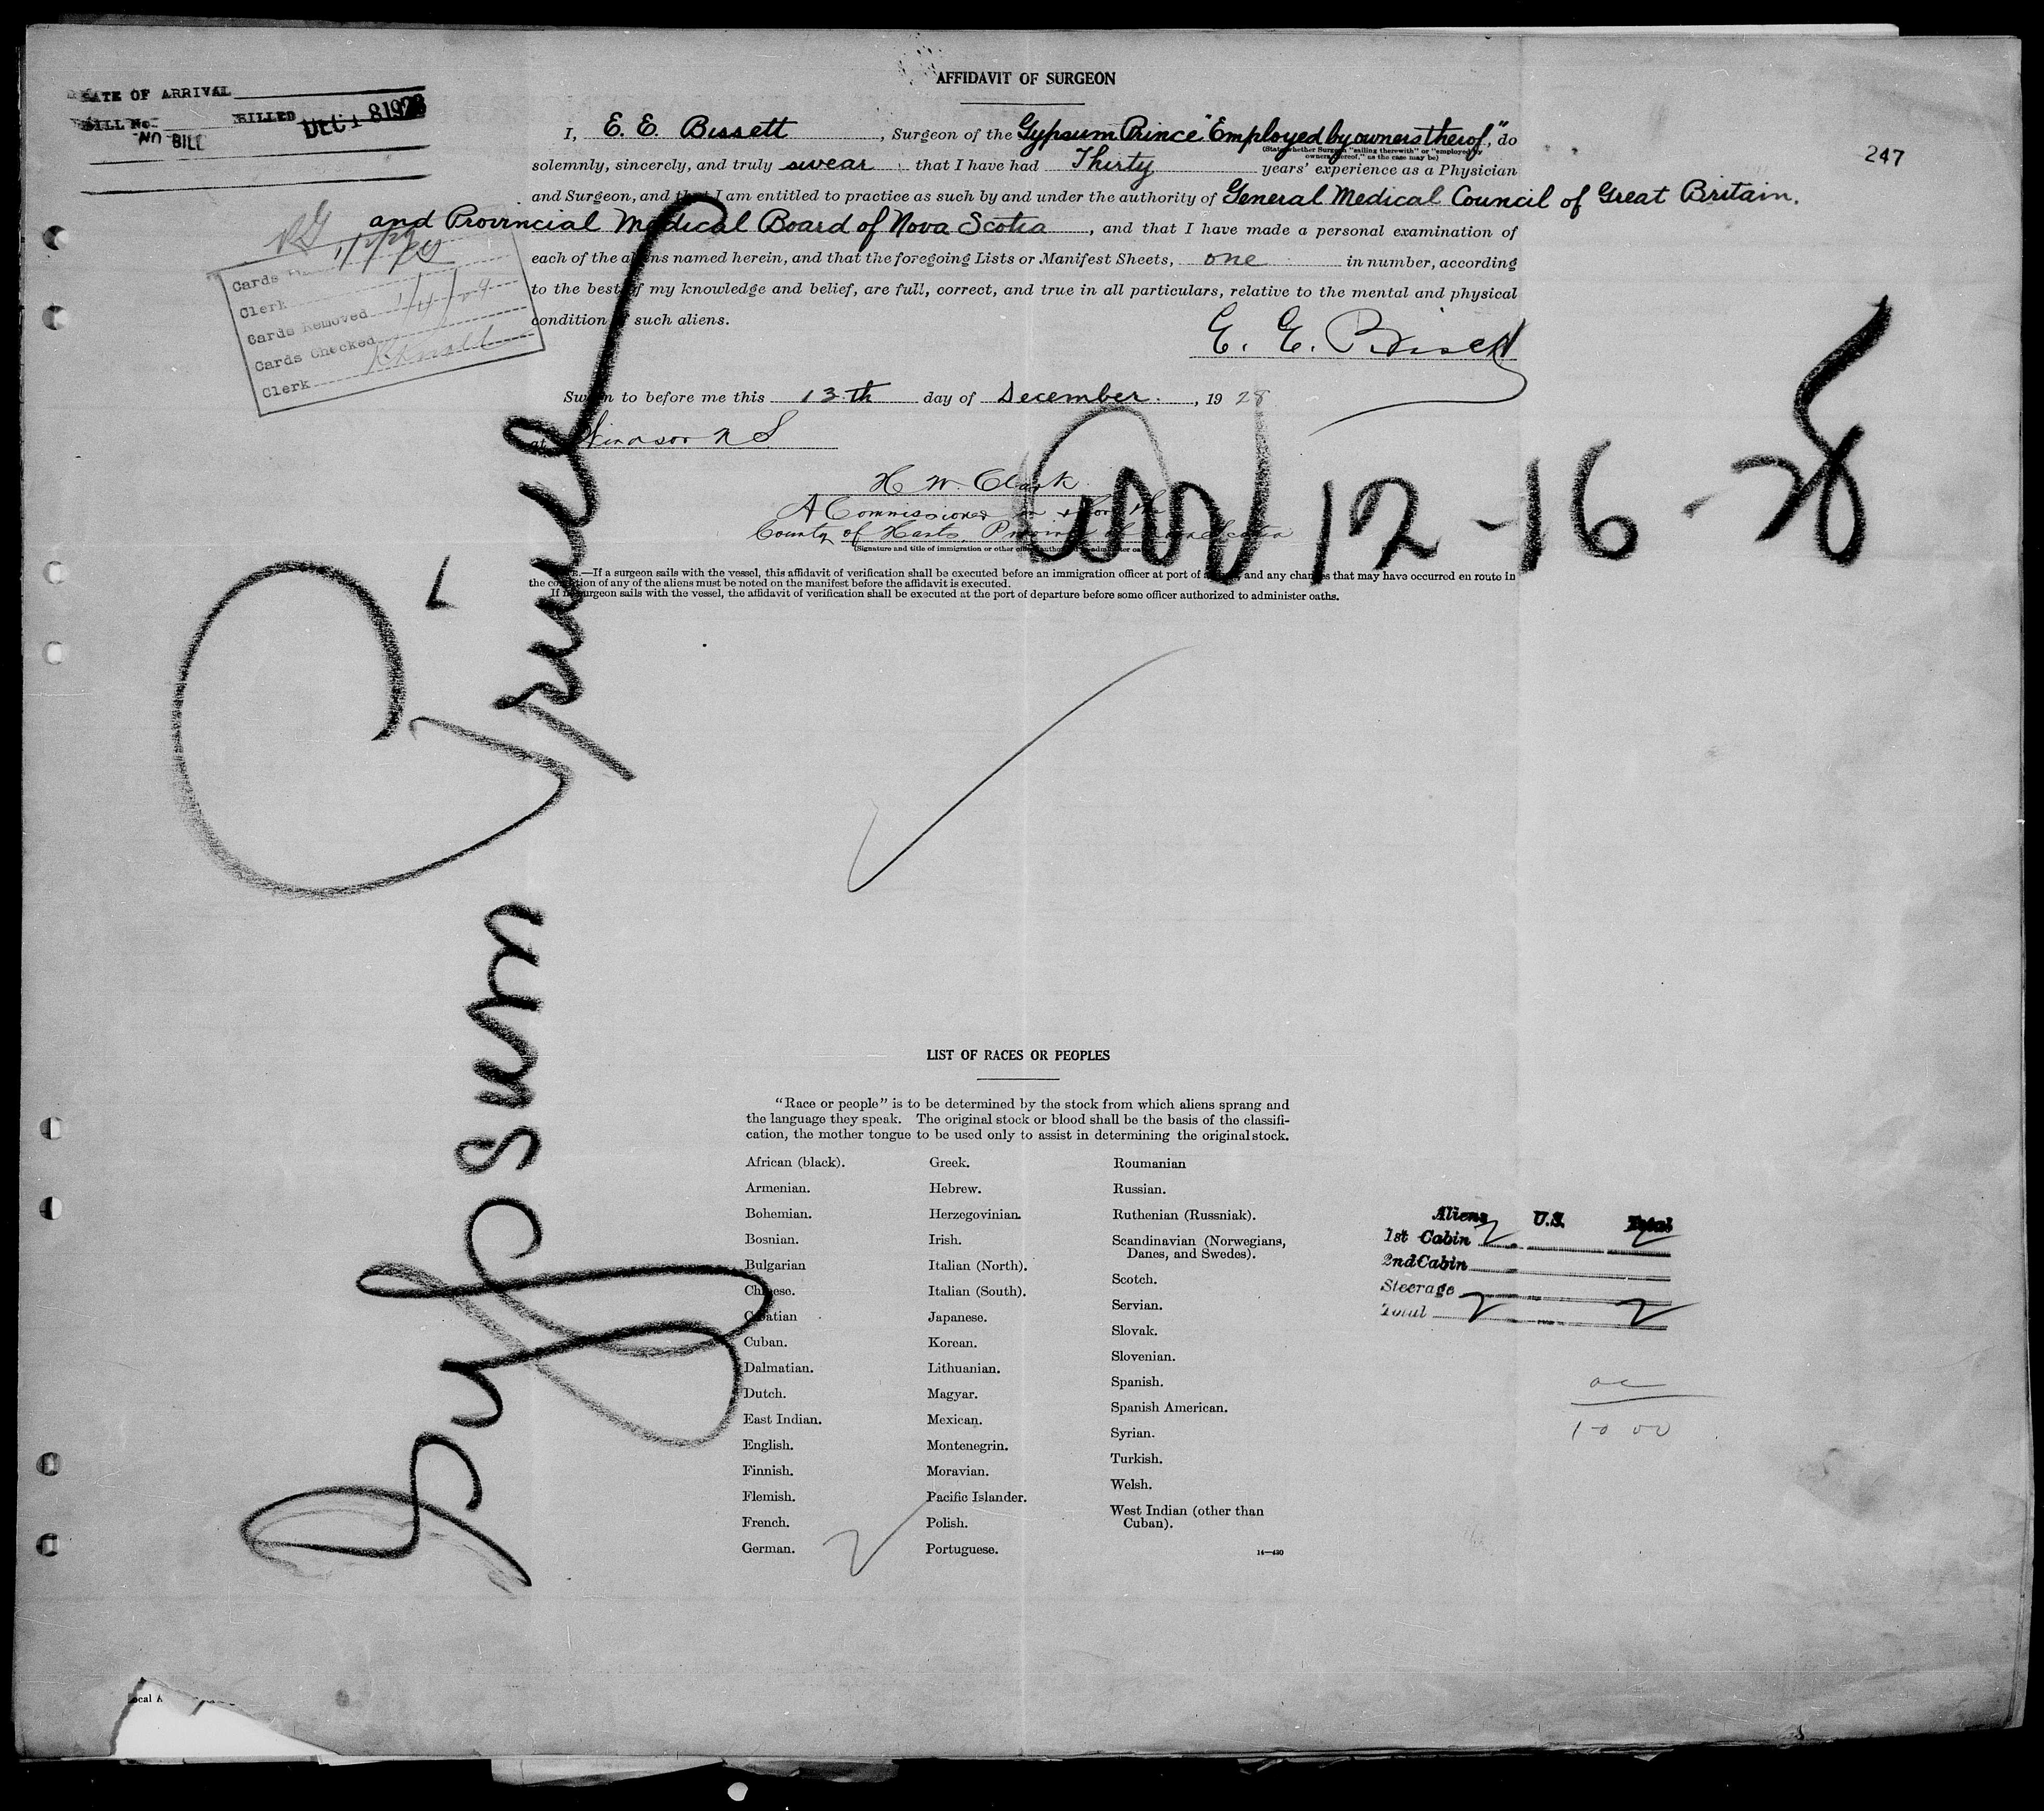 AFFIDAVIT OF SURGEON
DATE OF ARRIVAL
BILL No. BILLED DEC 1 8 1928
NO BILL
247
I, E. E. Bissett, Surgeon of the Gypsum Prince "Employed by owners therof," do
(State whether Surgeon "sailing therewith" or "employed by owners thereof," as the case may be)
solemnly, sincerely, and truly swear that I have had Thirty years' experience as a Physician
and Surgeon, and that I am entitled to practice as such by and under the authority of General Medical Council of Great Britain.
and Provincial Medical Board of Nova Scotia, and that I have made a personal examination of
each of the aliens named herein, and that the foregoing Lists or Manifest Sheets, one in number, according
to the best of my knowledge and belief, are full, correct, and true in all particulars, relative to the mental and physical
condition of such aliens.
E. E. Bissett
Cards
Clerk
Cards Removed
Cards Checked
Clerk
Sworn to before me this 13th day of December, 1928
at Windsor N S
H W. Clark
A Commissioner in & for the
County of Hants, Province of Nova Scotia
(Signature and title of immigration or other officer authorized to administer oaths)
12-16-28
NOTE.—If a surgeon sails with the vessel, this affidavit of verification shall be executed before an immigration officer at port of arrival, and any changes that may have occurred en route in
the condition of any of the aliens must be noted on the manifest before the affidavit is executed.
If no surgeon sails with the vessel, the affidavit of verification shall be executed at the port of departure before some officer authorized to administer oaths.
Gypsum Prince
LIST OF RACES OR PEOPLES
"Race or people" is to be determined by the stock from which aliens sprang and
the language they speak. The original stock or blood shall be the basis of the classifi-
cation, the mother tongue to be used only to assist in determining the original stock.
African (black).
Armenian.
Bohemian.
Bosnian.
Bulgarian
Chinese.
Croatian
Cuban.
Dalmatian.
Dutch.
East Indian.
English.
Finnish.
Flemish.
French.
German.
Greek.
Hebrew.
Herzegovinian.
Irish.
Italian (North).
Italian (South).
Japanese.
Korean.
Lithuanian.
Magyar.
Mexican.
Montenegrin.
Moravian.
Pacific Islander.
Polish.
Portuguese.
Roumanian
Russian.
Ruthenian (Russniak).
Scandinavian (Norwegians,
Danes, and Swedes).
Scotch.
Servian.
Slovak.
Slovenian.
Spanish.
Spanish American.
Syrian.
Turkish.
Welsh.
West Indian (other than
Cuban).
14—430
Aliens U.S. Total
1st Cabin 2 2
2nd Cabin
Steerage
Total 2 2